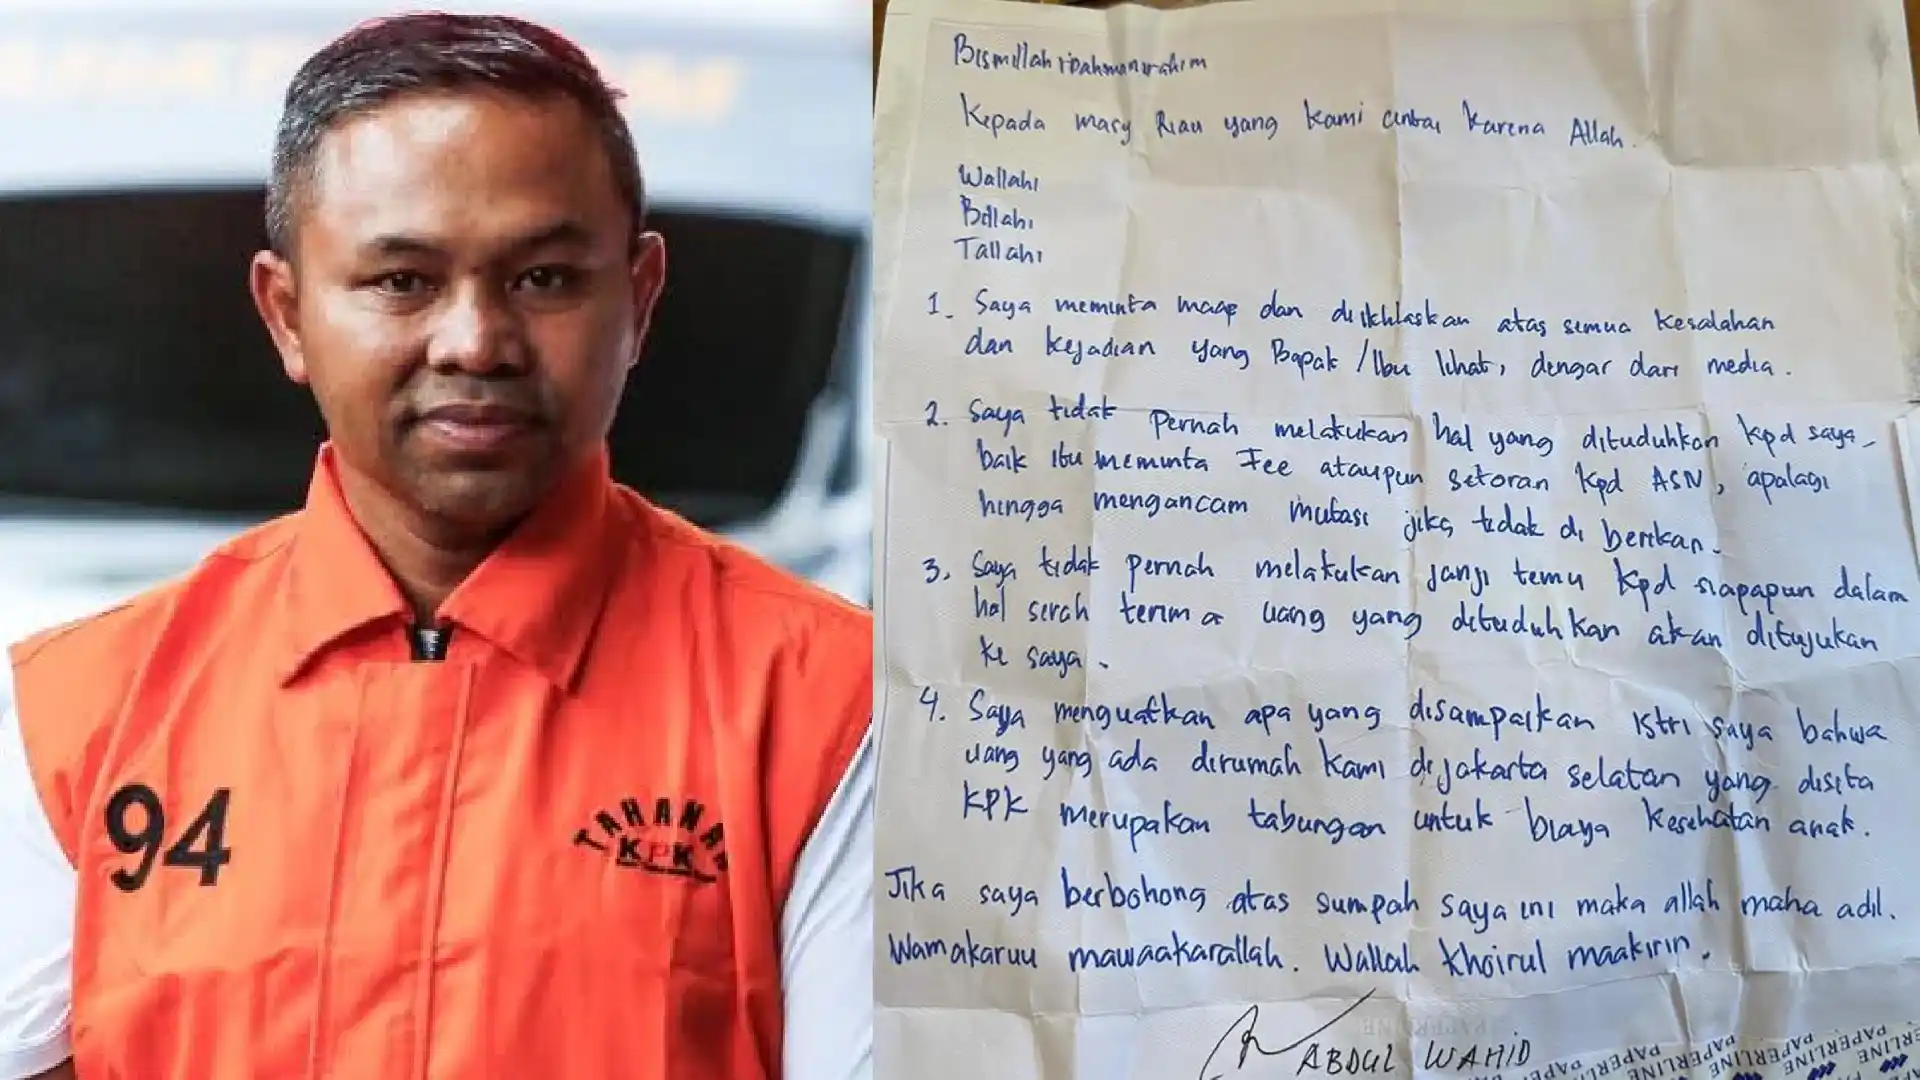 94
TAHANAN
KPK
Bismillahirrahmanirrahim
Kepada masy Riau yang kami cintai karena Allah.
Wallahi
Billahi
Tallahi
1. Saya meminta maap dan diikhlaskan atas semua kesalahan
dan kejadian yang Bapak/Ibu lihat, dengar dari media.
2. Saya tidak pernah melakukan hal yang dituduhkan kpd saya,
baik itu meminta Fee ataupun setoran kpd ASN, apalagi
hingga mengancam mutasi jika tidak di berikan.
3. Saya tidak pernah melakukan janji temu kpd siapapun dalam
hal serah terima uang yang dituduhkan akan ditujukan
ke saya.
4. Saya menguatkan apa yang disampaikan istri saya bahwa
uang yang ada dirumah kami dijakarta selatan yang disita
KPK merupakan tabungan untuk biaya kesehatan anak.
Jika saya berbohong atas sumpah saya ini maka allah maha adil.
Wamakaruu mawaakarallah. Wallah khoirul maakirin.
ABDUL WAHID
PAPERLINE PAPERLINE PAPERLINE PAPERLINE